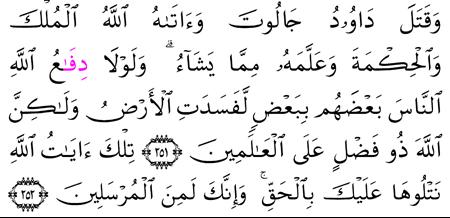 وَقَتَلَ دَاوُۥدُ جَالُوتَ وَءَاتَىٰهُ ٱللَّهُ ٱلْمُلْكَ
وَٱلْحِكْمَةَ وَعَلَّمَهُۥ مِمَّا يَشَآءُ ۗ وَلَوْلَا دِفَٰعُ ٱللَّهِ
ٱلنَّاسَ بَعْضَهُم بِبَعْضٍ لَّفَسَدَتِ ٱلْأَرْضُ وَلَٰكِنَّ
ٱللَّهَ ذُو فَضْلٍ عَلَى ٱلْعَٰلَمِينَ ﴿٢٥١﴾ تِلْكَ ءَايَٰتُ ٱللَّهِ
نَتْلُوهَا عَلَيْكَ بِٱلْحَقِّ ۚ وَإِنَّكَ لَمِنَ ٱلْمُرْسَلِينَ ﴿٢٥٢﴾